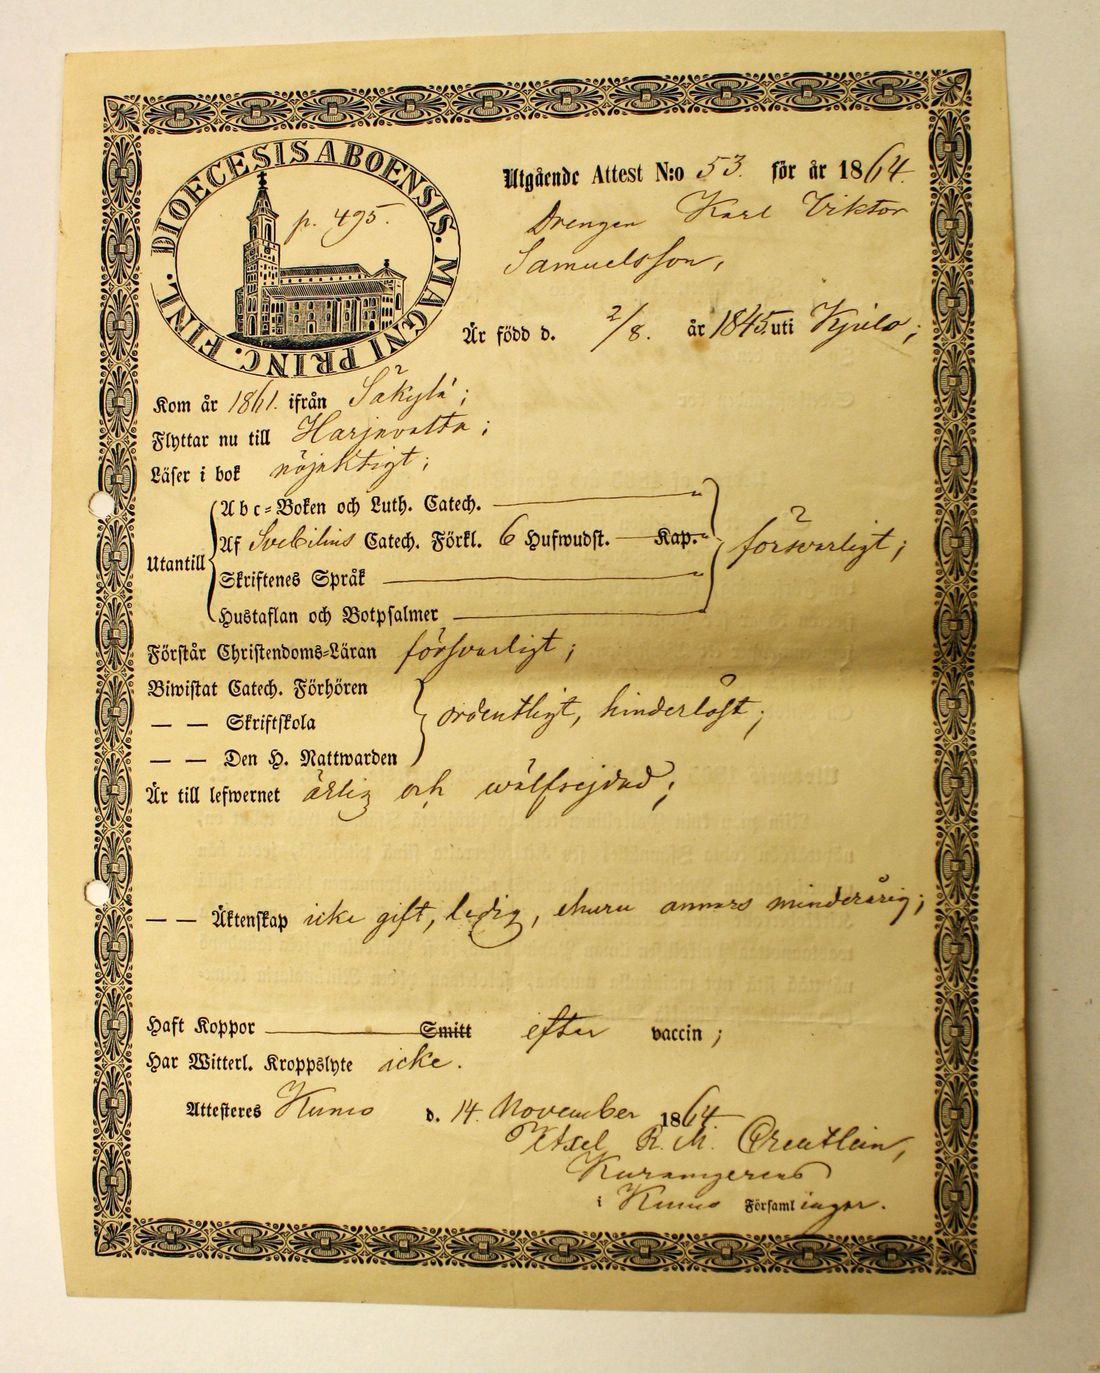 DIOECESIS ABOENSIS. MAGNI PRINC. FINL.
p. 495.
Utgående Attest N:o 53. för år 1864.
Drengen Karl Viktor
Samuelsson,
Är född d. 2/8. år 1845. uti Kjulo;
Kom år 1861. ifrån Säkylä;
Flyttar nu till Harjavalta;
Läser i bok nöjaktigt;
Utantill
Abc-Boken och Luth. Catech. —
Af Svebilius Catech. Förkl. 6 Hufwudst. — Kap.
försvarligt;
Skriftenes Språk —
Hustaflan och Botpsalmer —
Förstår Christendoms-Läran försvarligt;
Biwistat Catech. Förhören
— — Skriftskola
ordentligt, hinderlöst;
— — Den H. Nattwarden
Är till lefwernet ärlig och wälfrejdad;
— — Äktenskap icke gift, ledig, ehuru annars minderårig;
Haft Koppor — Smitt efter vaccin;
Har Witterl. Kroppslyte icke.
Attesteres Kumo d. 14. November 1864
Axel R. M.
i Kumo Församlingar.